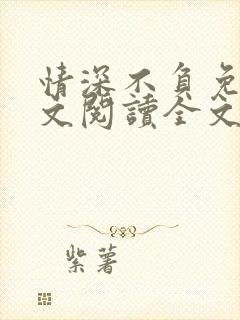 情深不負免
文閱讀全文
紫薯